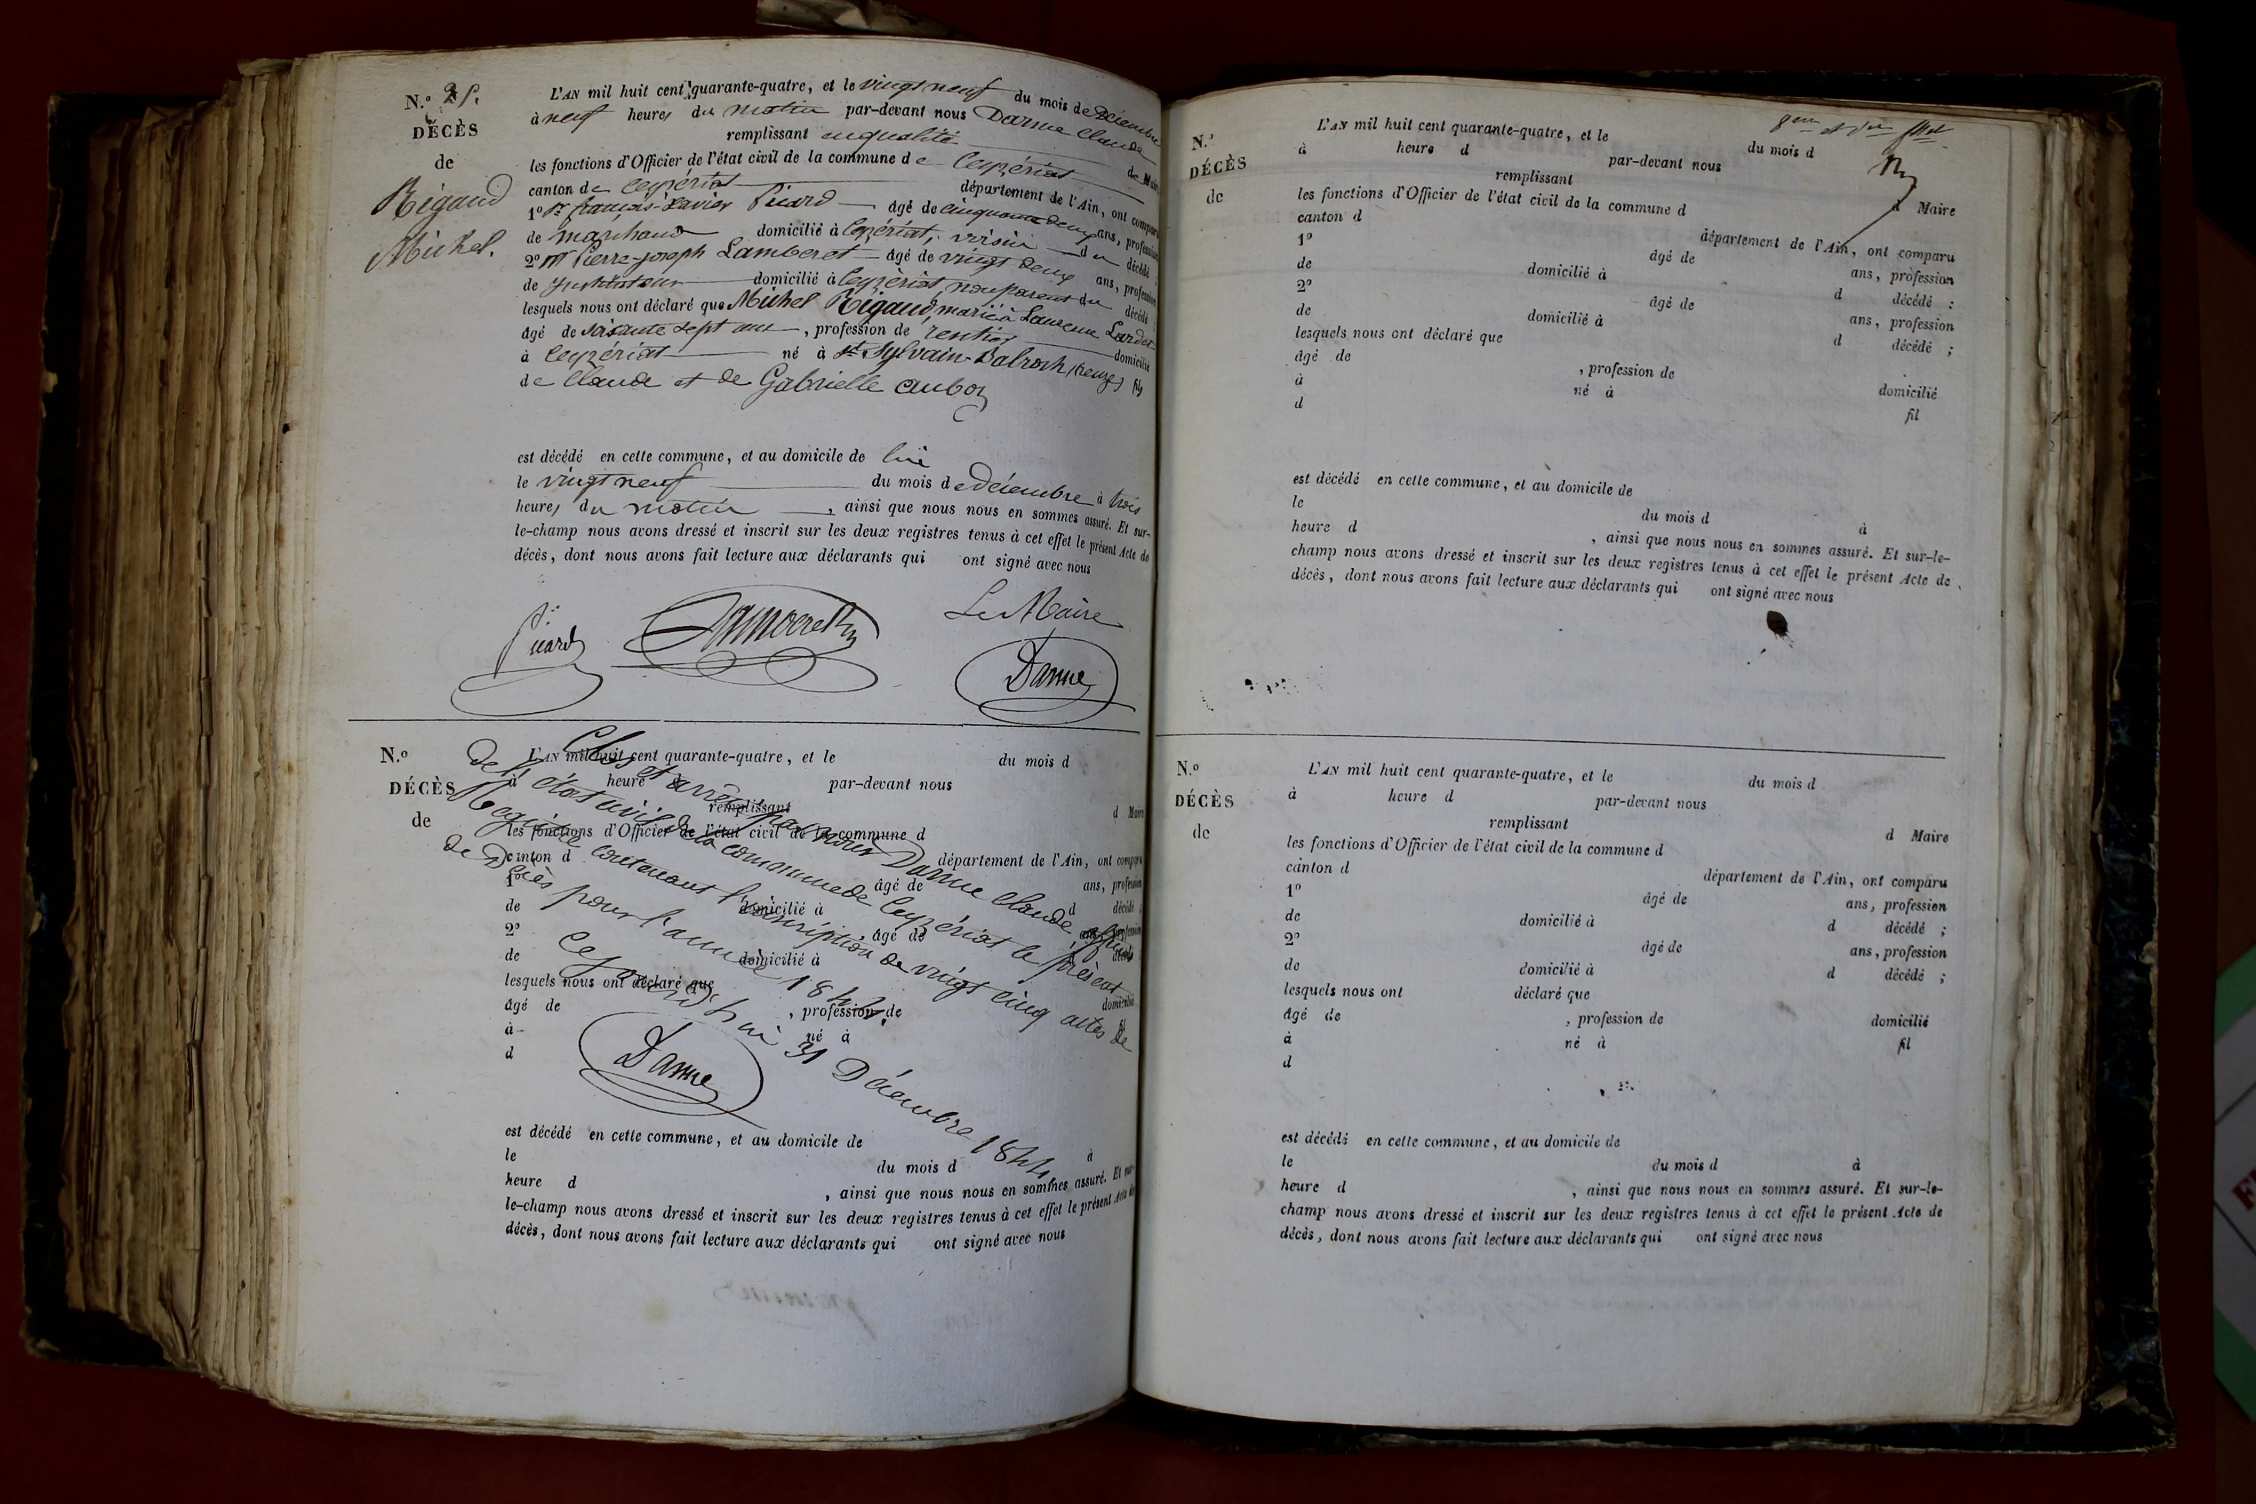 N.º 25.
DÉCÈS
de
Rigaud
Michel.
L'AN mil huit cent quarante-quatre, et le vingt neuf du mois de Décembre
à neuf heures du matin par-devant nous Darme Claude
remplissant en qualité de Maire
les fonctions d'Officier de l'état civil de la commune de Ceyzériat
canton de Ceyzériat département de l'Ain, ont comparu
1º Sr françois-Xavier Picard âgé de cinquante deux ans, profession
de marchand domicilié à Ceyzériat, voisin du décédé
2º Mr Pierre-joseph Lamberet âgé de vingt deux ans, profession
de Instituteur domicilié à Ceyzériat, non parent du décédé
lesquels nous ont déclaré que Michel Rigaud, marié à Laurence Lardet
âgé de soixante sept ans, profession de rentier domicilié
à Ceyzériat né à St Sylvain (creuze) fils
de Claude et de Gabrielle
est décédé en cette commune, et au domicile de lui
le vingt neuf du mois de Décembre à trois
heures du matin, ainsi que nous nous en sommes assuré. Et sur-
le-champ nous avons dressé et inscrit sur les deux registres tenus à cet effet le présent Acte de
décès, dont nous avons fait lecture aux déclarants qui ont signé avec nous
Le Maire
Picard
Lamberet
Darme
N.º
DÉCÈS
de
L'AN mil huit cent quarante-quatre, et le du mois d
à heure d par-devant nous
remplissant d Maire
les fonctions d'Officier de l'état civil de la commune d
canton d département de l'Ain, ont comparu
1º âgé de ans, profession
de domicilié à d décédé ;
2º âgé de ans, profession
de domicilié à d décédé
lesquels nous ont déclaré que
âgé de , profession de domicilié
à né à fil
d
Clos et arrêté par nous Darme Claude officier
de l'état civil de la commune de Ceyzériat le présent
Registre contenant l'inscription de vingt cinq actes de
de Décès pour l'année 1844.
Ceyzériat, hui 31 Décembre 1844
Darme
est décédé en cette commune, et au domicile de
le du mois d à
heure d , ainsi que nous nous en sommes assuré. Et sur-
le-champ nous avons dressé et inscrit sur les deux registres tenus à cet effet le présent Acte de
décès, dont nous avons fait lecture aux déclarants qui ont signé avec nous
N.º
DÉCÈS
de
L'AN mil huit cent quarante-quatre, et le du mois d
à heure d par-devant nous
remplissant d Maire
les fonctions d'Officier de l'état civil de la commune d
canton d département de l'Ain, ont comparu
1º âgé de ans, profession
de domicilié à d décédé ;
2º âgé de ans, profession
de domicilié à d décédé ;
lesquels nous ont déclaré que
âgé de , profession de domicilié
à né à fil
d
est décédé en cette commune, et au domicile de
le du mois d à
heure d , ainsi que nous nous en sommes assuré. Et sur-le-
champ nous avons dressé et inscrit sur les deux registres tenus à cet effet le présent Acte de
décès, dont nous avons fait lecture aux déclarants qui ont signé avec nous
N.º
DÉCÈS
de
L'AN mil huit cent quarante-quatre, et le du mois d
à heure d par-devant nous
remplissant d Maire
les fonctions d'Officier de l'état civil de la commune d
canton d département de l'Ain, ont comparu
1º âgé de ans, profession
de domicilié à d décédé ;
2º âgé de ans, profession
de domicilié à d décédé ;
lesquels nous ont déclaré que
âgé de , profession de domicilié
à né à fil
d
est décédé en cette commune, et au domicile de
le du mois d à
heure d , ainsi que nous nous en sommes assuré. Et sur-le-
champ nous avons dressé et inscrit sur les deux registres tenus à cet effet le présent Acte de
décès, dont nous avons fait lecture aux déclarants qui ont signé avec nous